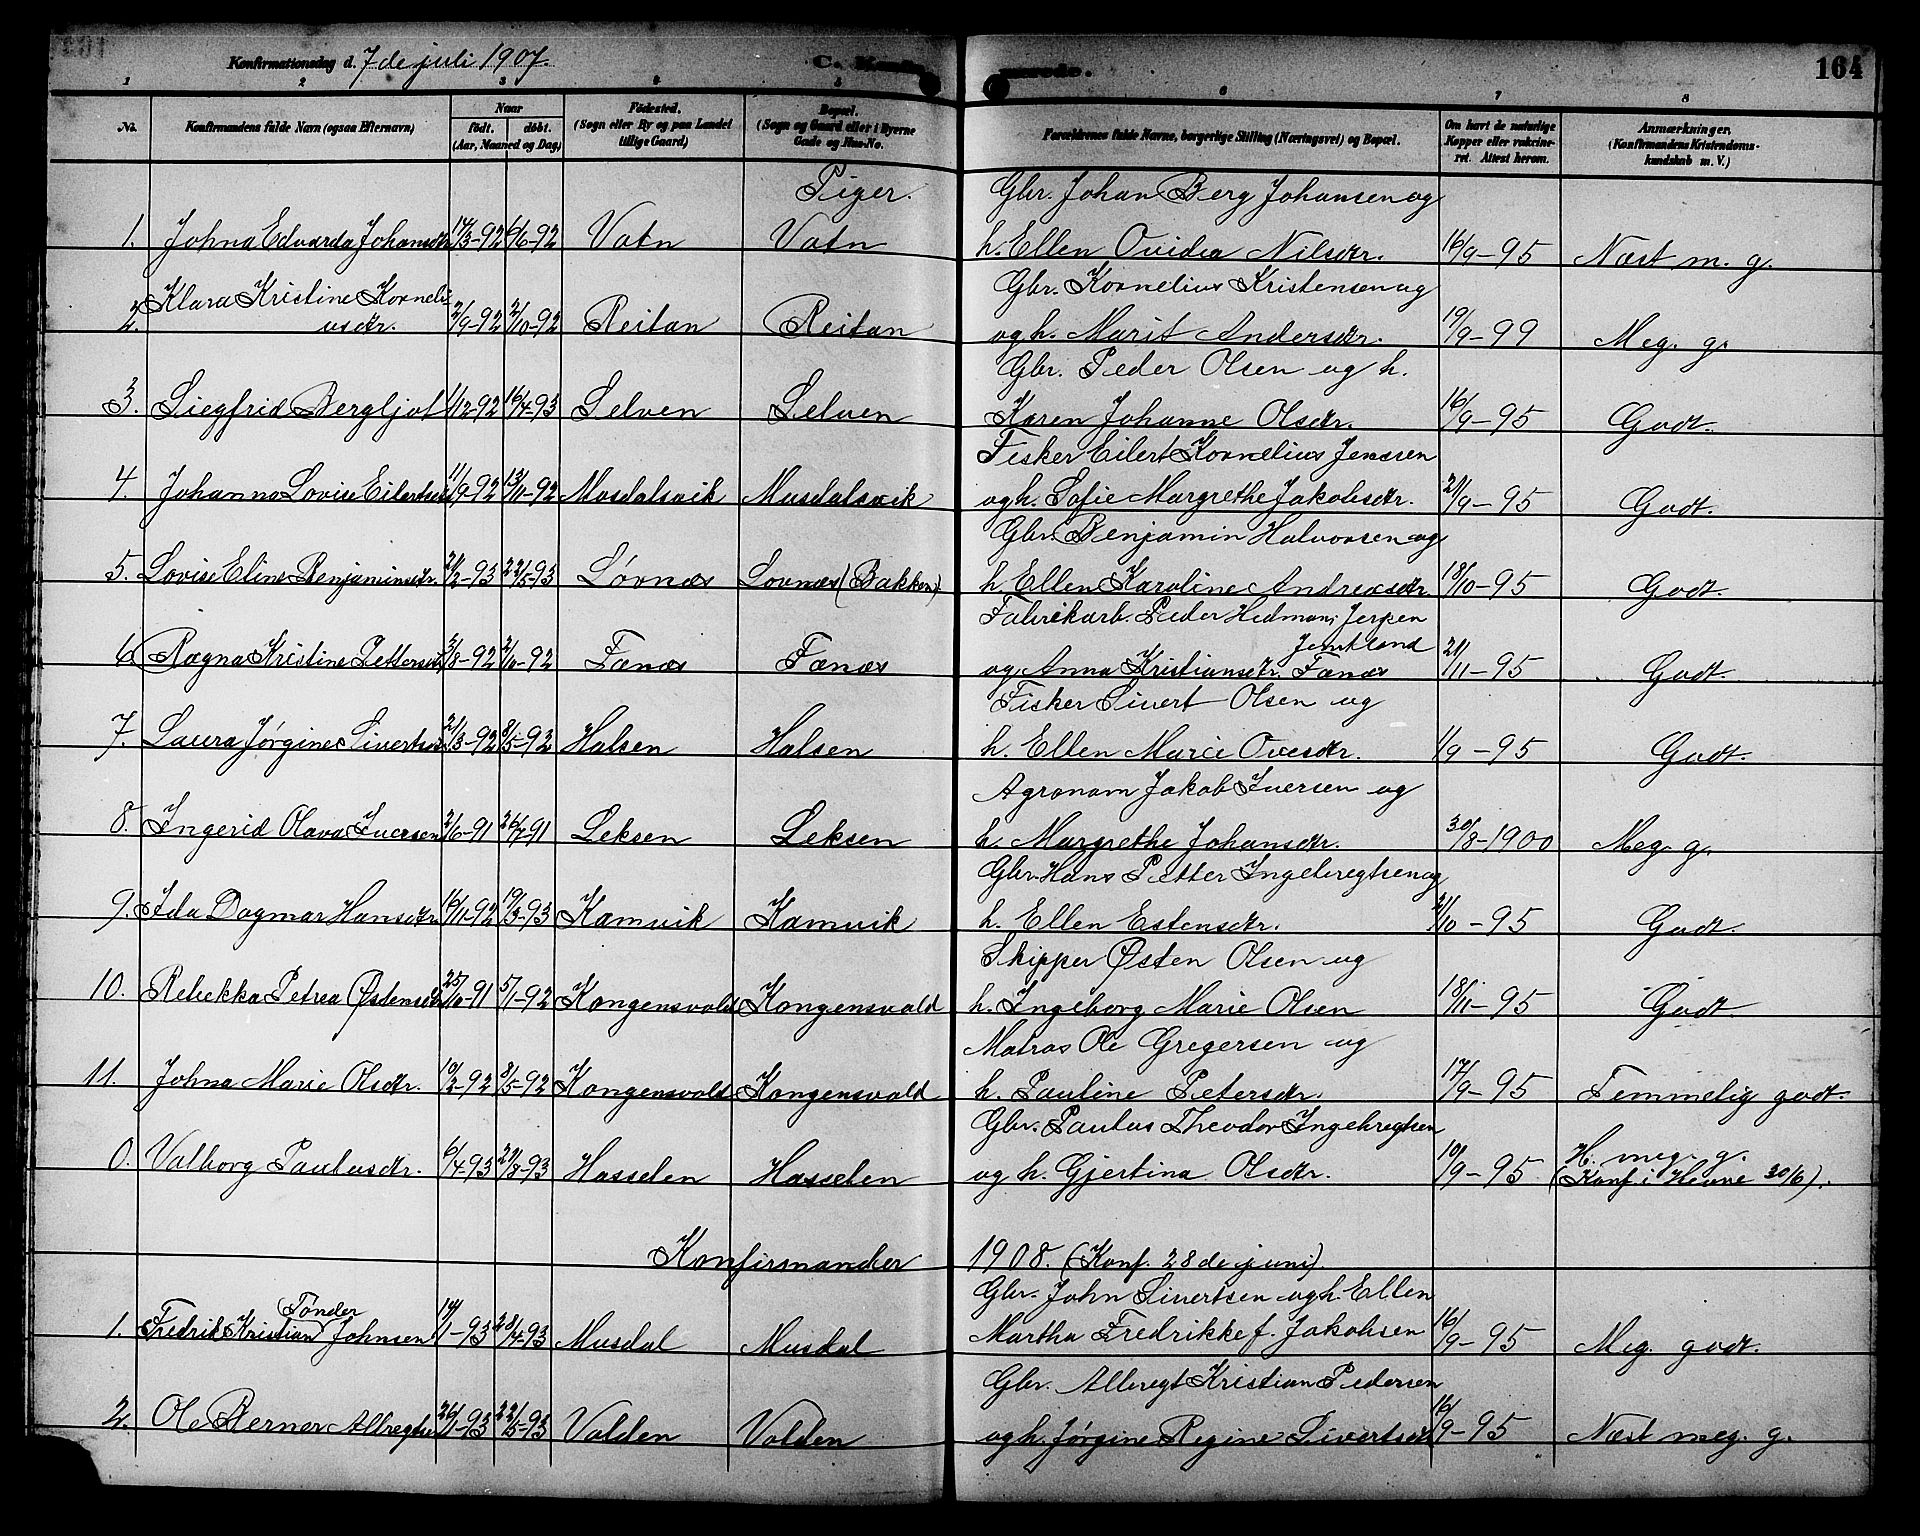 Konfirmationsdag d. 7de juli 1907. C. Konfirmerede. 164
1 2 3 4 5 6 7 8
No. Konfirmandens fulde Navn (ogsaa Efternavn) Naar født. døbt. (Aar, Maaned og Dag) Fødested. (Sogn eller By og paa Landet tillige Gaard) Bopæl. (Sogn og Gaard eller i Byerne Gade og Hus-No. Forældrenes fulde Navne, borgerlige Stilling (Næringsvei) og Bopæl. Om havt de naturlige Kopper eller vakcineret. Attest herom. Anmærkninger. (Konfirmandens Kristendomskundskab m. V.)
Piger. Gbr. Johan Berg Johansen og
1. Johna Edvarda Johansdtr 17/3-92 6/6-92 Vatn Vatn h. Ellen Ovidia Nilsdtr. 16/9-95 Næst m. g.
Klara Kristine Korneli- Gbr. Kornelius Kristensen og
2. usdtr. 2/9-92 2/10-92 Reitan Reitan og h. Marit Andersdtr. 19/9-99 Meg. g.
Gbr. Peder Olsen og h.
3. Siegfrid Bergljot 1/12-92 16/4-93 Selven Selven Karen Johanne Olsdtr. 16/9-95 Godt.
Fisker Eilert Kornelius Jensen
4. Johanna Lovise Eilertsdtr 11/9-92 13/11-92 Musdalsvik Musdalsvik og h. Sofie Margrethe Jakobsdtr. 21/9-95 Godt.
Gbr. Benjamin Halvorsen og
5. Lovise Eline Benjaminsdtr. 21/2-93 22/5-93 Løvnæs Lovnæs (Bakken) h. Ellen Karoline Andreasdtr. 18/10-95 Godt.
Fabrikarb. Peder Hedman, Jerpen
Jemtland
6. Ragna Kristine Pettersdtr 3/8-92 2/10-92 Fænæs Fænæs og Anna Kristiansdtr. Fænæs 21/11-95 Godt.
Fisker Sivert Olsen og
7. Laura Jørgine Sivertsdtr 21/3-92 8/5-92 Halsen Halsen h. Ellen Marie Ovesdtr. 1/9-95 Godt.
Agronom Jakob Iversen og
8. Ingerid Olava Iversen 2/6-91 26/7-91 Leksen Leksen h. Margrethe Johansdtr. 30/8-1900 Meg. g.
Gbr. Hans Petter Ingebregtsen og
9. Ida Dagmar Hansdtr 16/11-92 19/3-93 Kamvik Kamvik h. Ellen Estensdtr. 21/10-95 Godt.
Skipper Østen Olsen og
10. Rebekka Petrea Østensdtr 25/10-91 5/1-92 Kongensvold Kongensvold h. Ingeborg Marie Olsen 18/11-95 Godt
Matros Ole Gregersen og
11. Johna Marie Olsdtr. 10/2-92 8/5-92 Kongensvold Kongensvold h. Pauline Petersdtr. 17/9-95 Temmelig godt.
Gbr. Paulus Theodor Ingebregtsen
0. Valborg Paulusdtr. 6/4-93 27/8-93 Hasselen Hasselen og h. Gjertina Olsdtr. 10/9-95 H. meg. g.
(Konf. i Hevne 30/6).
Konfirmander 1908. (Konf. 28de juni)
Tønder Gbr. John Sivertsen og h. Ellen
1. Fredrik Kristian Johnsen 14/1-93 28/4-93 Musdal Musdal Martha Fredrikke f. Jakobsen 16/9-95 Meg. godt.
Gbr. Albregt Kristian Pedersen
2. Ole Berner Albregtsen 26/1-93 22/5-93 Valden Valden og h. Jørgine Regine Sivertsdtr 16/9-95 Næst meg. g.